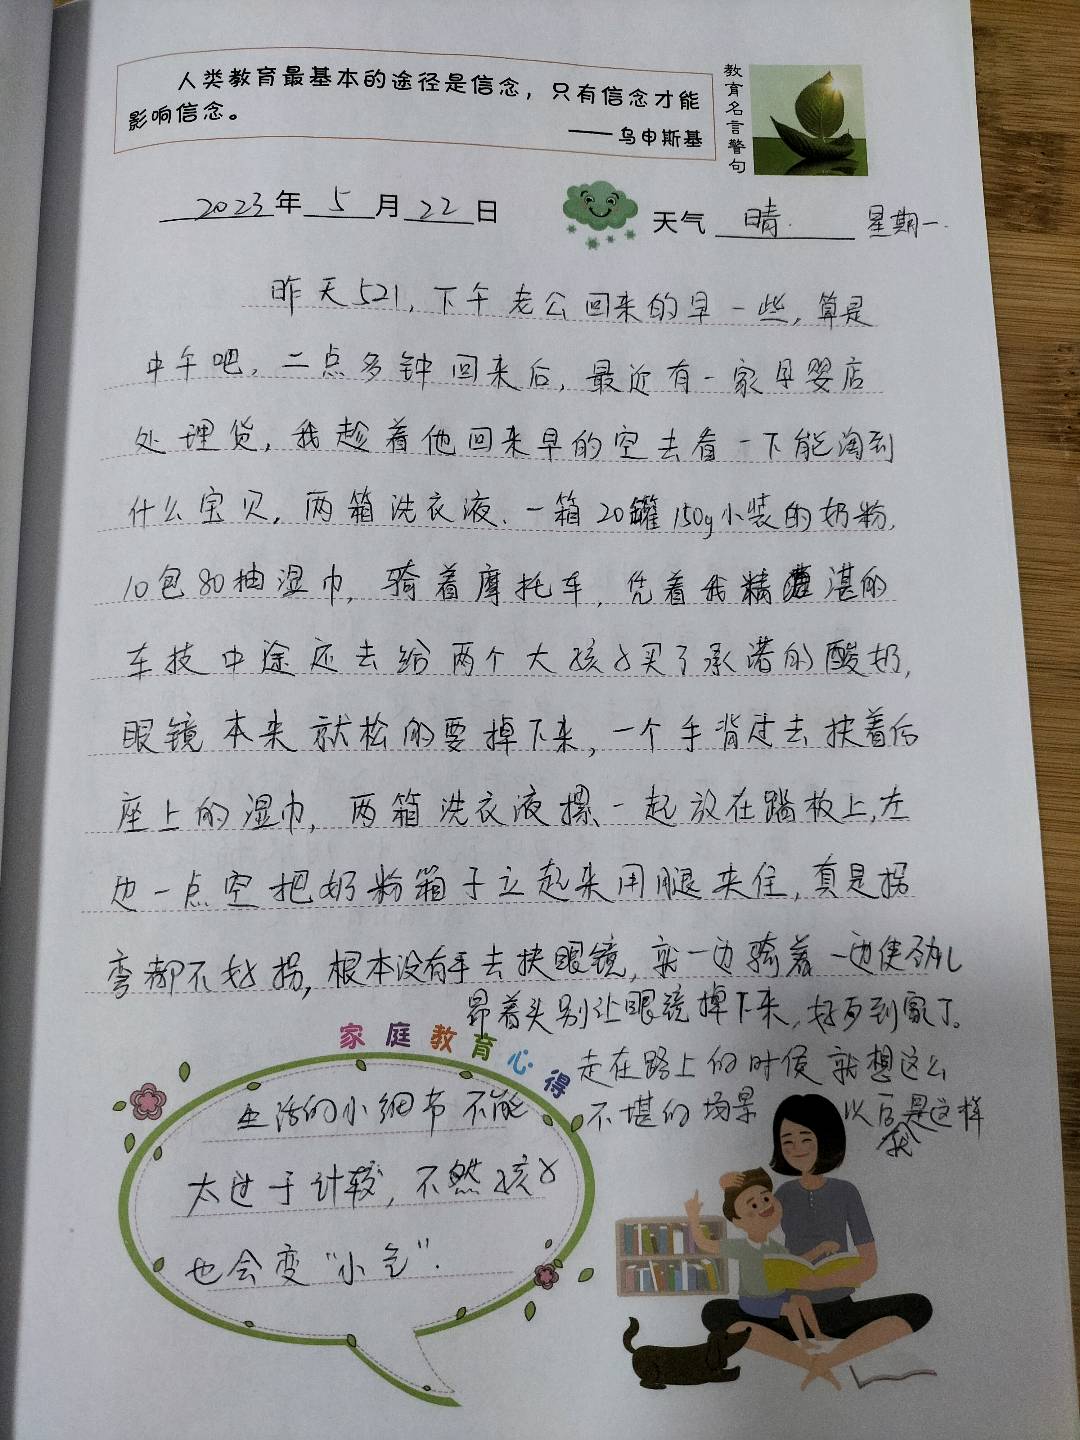 人类教育最基本的途径是信念，只有信念才能
影响信念。
——乌申斯基
教育名言警句
2023年 5 月 22 日
天气 晴. 星期一.
昨天521，下午老公回来的早一些，算是
中午吧，二点多钟回来后，最近有一家母婴店
处理货，我趁着他回来早的空去看一下能淘到
什么宝贝，两箱洗衣液、一箱20罐150g小装的奶粉，
10包80抽湿巾，骑着摩托车，凭着我精湛的
车技中途还去给两个大孩子买了承诺的酸奶，
眼镜本来就松的要掉下来，一个手背过去扶着后
座上的湿巾，两箱洗衣液摞一起放在踏板上，左
边一点空把奶粉箱子立起来用腿夹住，真是拐
弯都不好拐，根本没有手去扶眼镜，就一边骑着一边使劲儿
昂着头别让眼镜掉下来，好歹到家了。
走在路上的时候就想这么
不堪的场景 以后我是这样
家庭教育心得
生活的小细节不能
太过于计较，不然孩子
也会变“小气”.